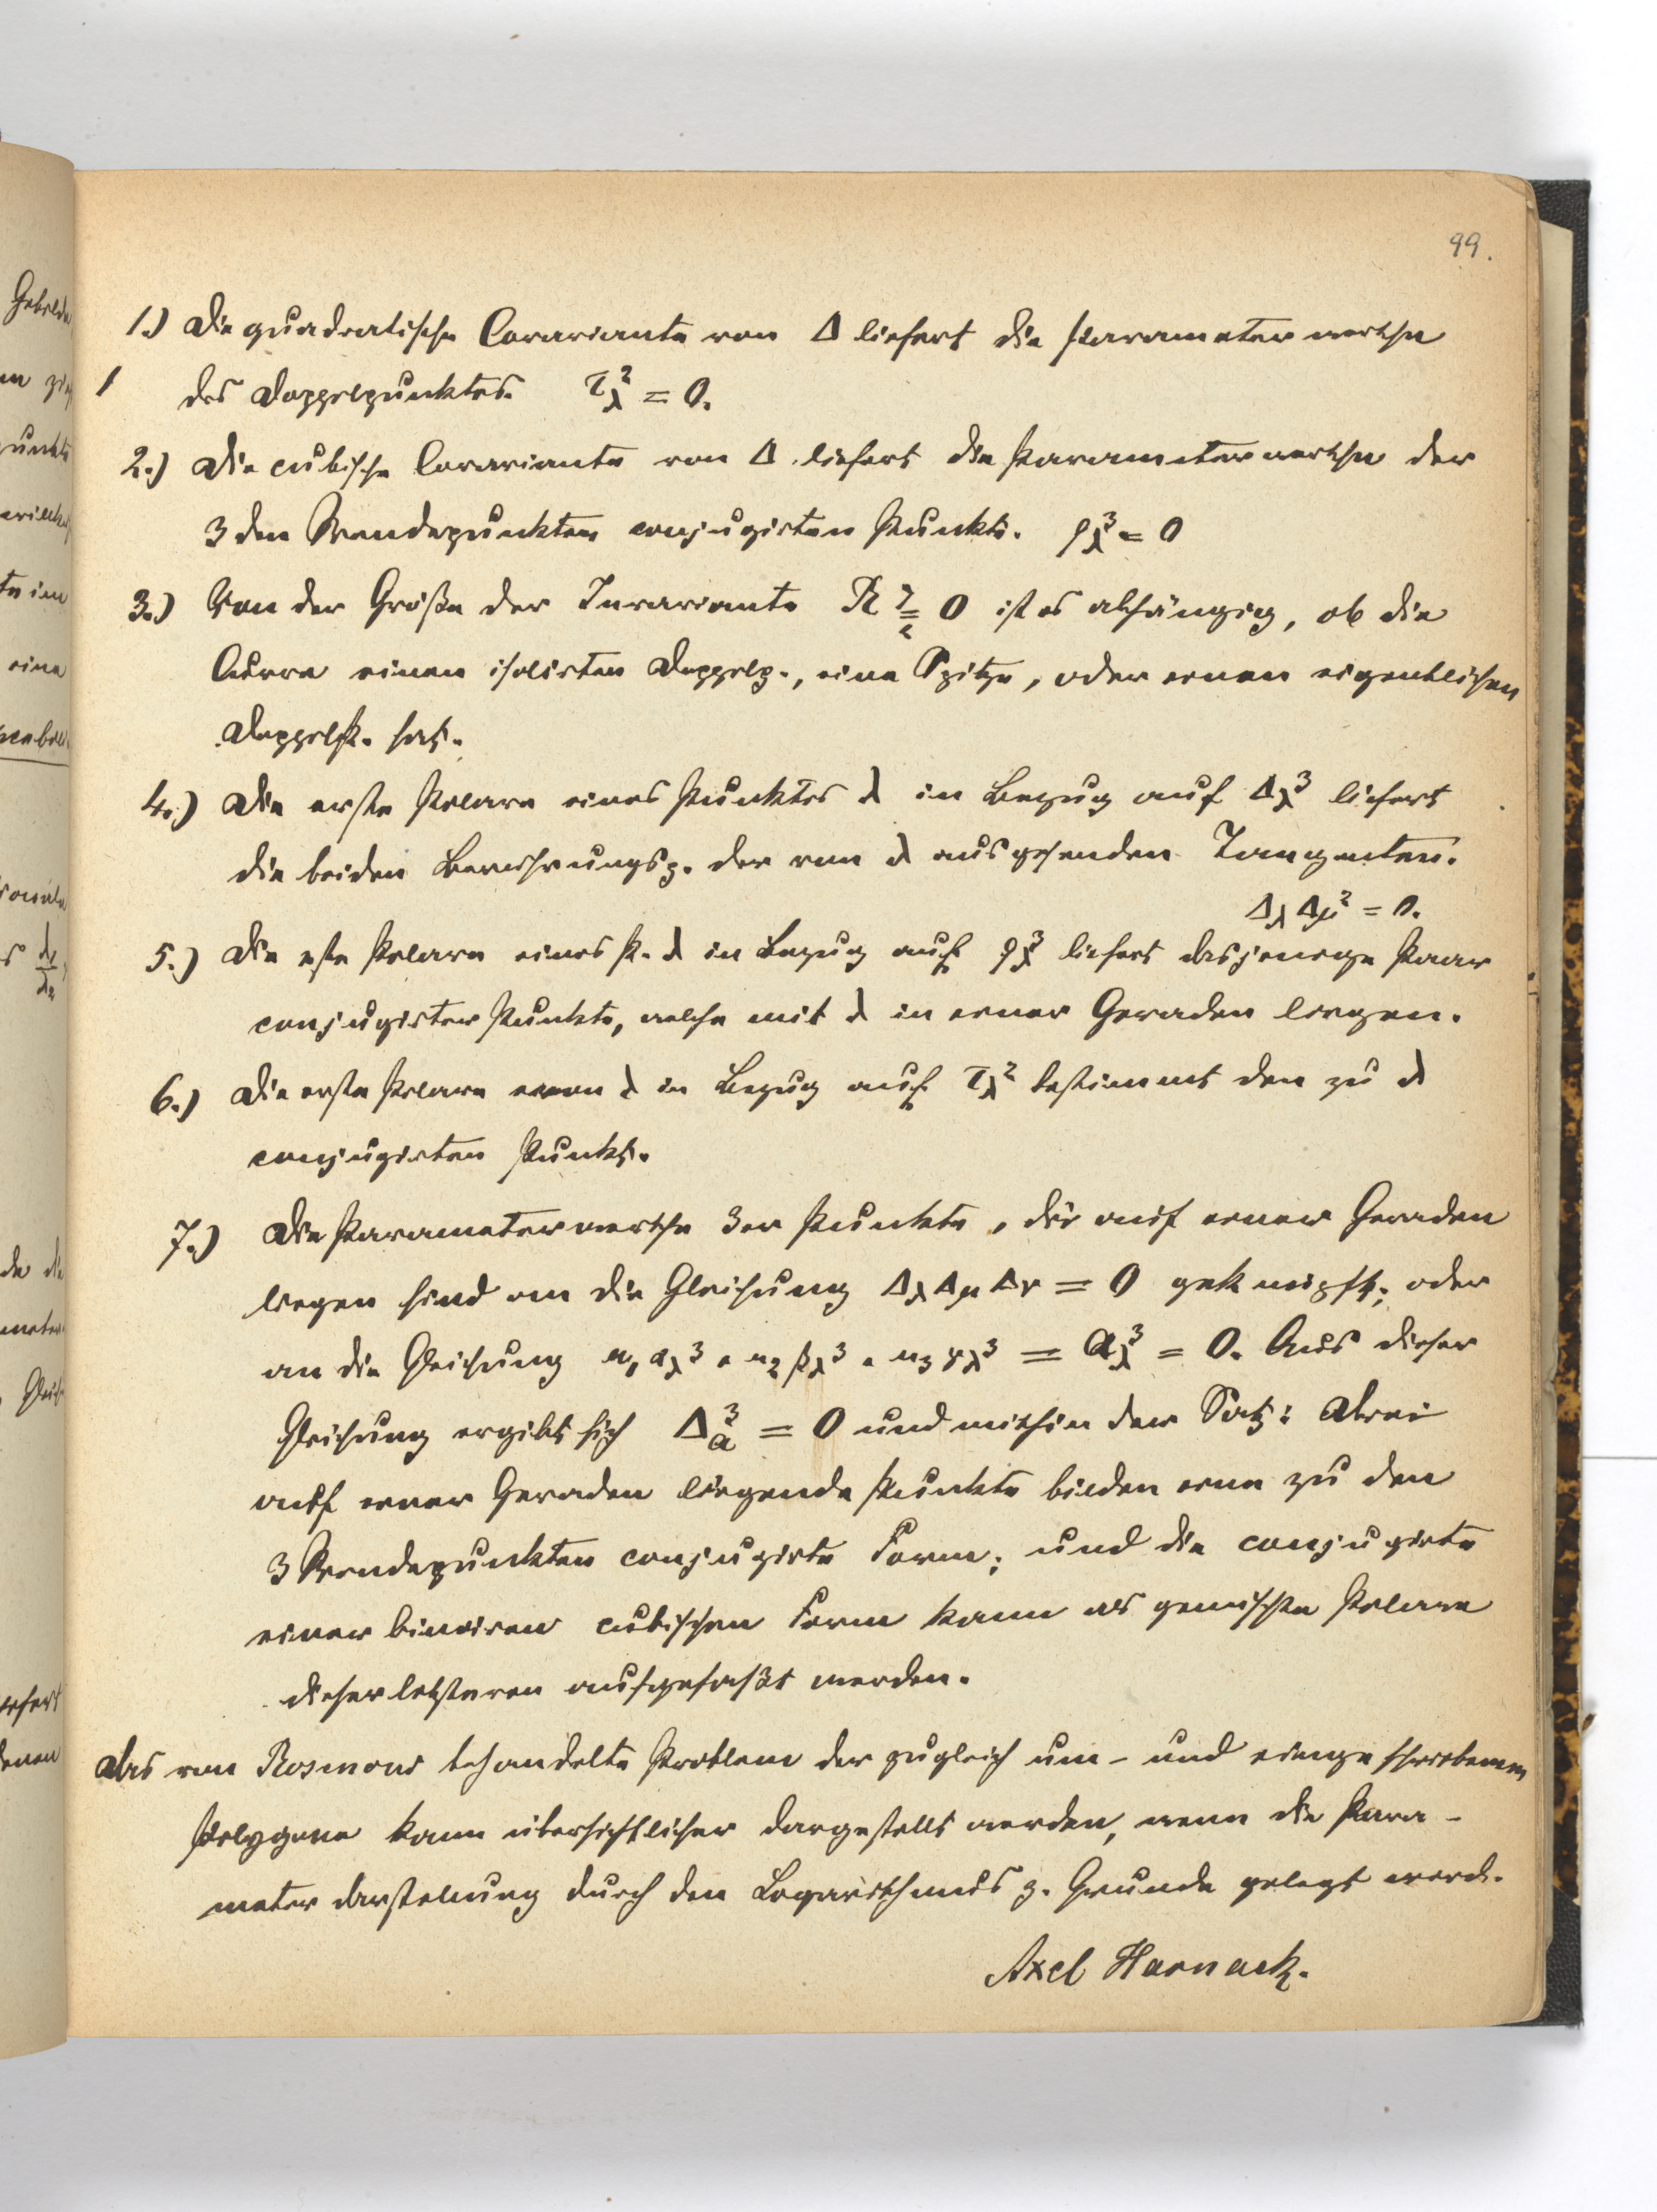 99.
1.) Die quadratische Covariante von Δ liefert die Parameterwerthe
des Doppelpunktes. τλ² = 0.
2.) Die cubische Covariante von Δ liefert die Parameterwerthe der
3 den Wendepunkten conjugirten Punkte. ρλ³ = 0
3.) Von der Größe der Invariante R ⪌ 0 ist es abhängig, ob die
Curve einen isolirten Doppelp., eine Spitze, oder einen eigentlichen
Doppelpk. hat.
4.) Die erste Polare eines Punktes λ in Bezug auf Δλ³ liefert
die beiden Berührungsp. der von λ ausgehenden Tangenten.
Δλ Δμ² = 0.
5.) Die erste Polare eines P. λ in Bezug auf ρλ³ liefert dasjenige Paar
conjugirter Punkte, welche mit λ in einer Geraden liegen.
6.) Die erste Polare von λ in Bezug auf τλ² bestimmt den zu λ
conjugirten Punkt.
7.) Die Parameterwerthe 3er Punkte, die auf einer Geraden
liegen sind an die Gleichung Δλ Δμ Δν = 0 geknüpft; oder
an die Gleichung u₁ αλ³ + u₂ βλ³ + u₃ γλ³ = aλ³ = 0. Aus dieser
Gleichung ergibt sich Δa³ = 0 und mithin der Satz: Drei
auf einer Geraden liegende Punkte bilden eine zu den
3 Wendepunkten conjugirte Form; und die conjugirte
einer binären cubischen Form kann als gemischte Polare
dieser letzteren aufgefaßt werden.
Das von Rosanow behandelte Problem der zugleich um- und eingeschriebenen
Polygone kann übersichtlicher dargestellt werden, wenn die Para-
meterdarstellung durch den Logarithmus z. Grunde gelegt werd.
Axel Harnack.